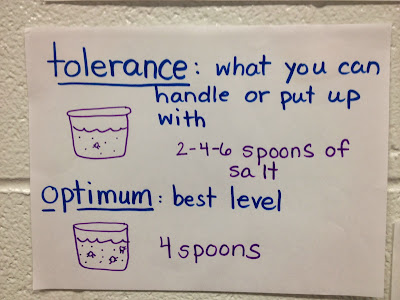 tolerance: what you can
handle or put up
with
2-4-6 spoons of
salt
Optimum: best level
4 spoons